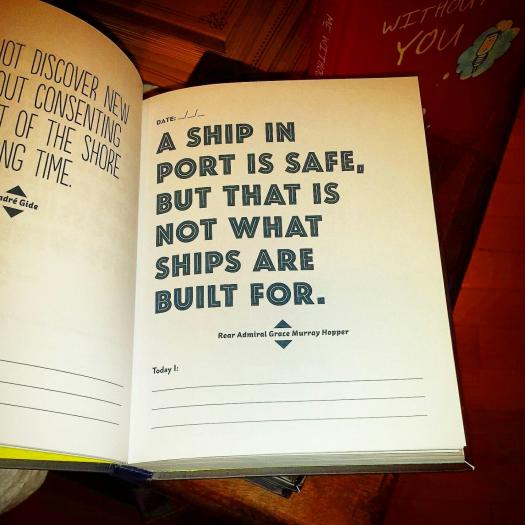 NOT DISCOVER NEW
OUT CONSENTING
OF THE SHORE
TIME.
Gide
DATE: _/_/_
A SHIP IN
PORT IS SAFE,
BUT THAT IS
NOT WHAT
SHIPS ARE
BUILT FOR.
Rear Admiral Grace Murray Hopper
Today I:
WITHOUT
YOU